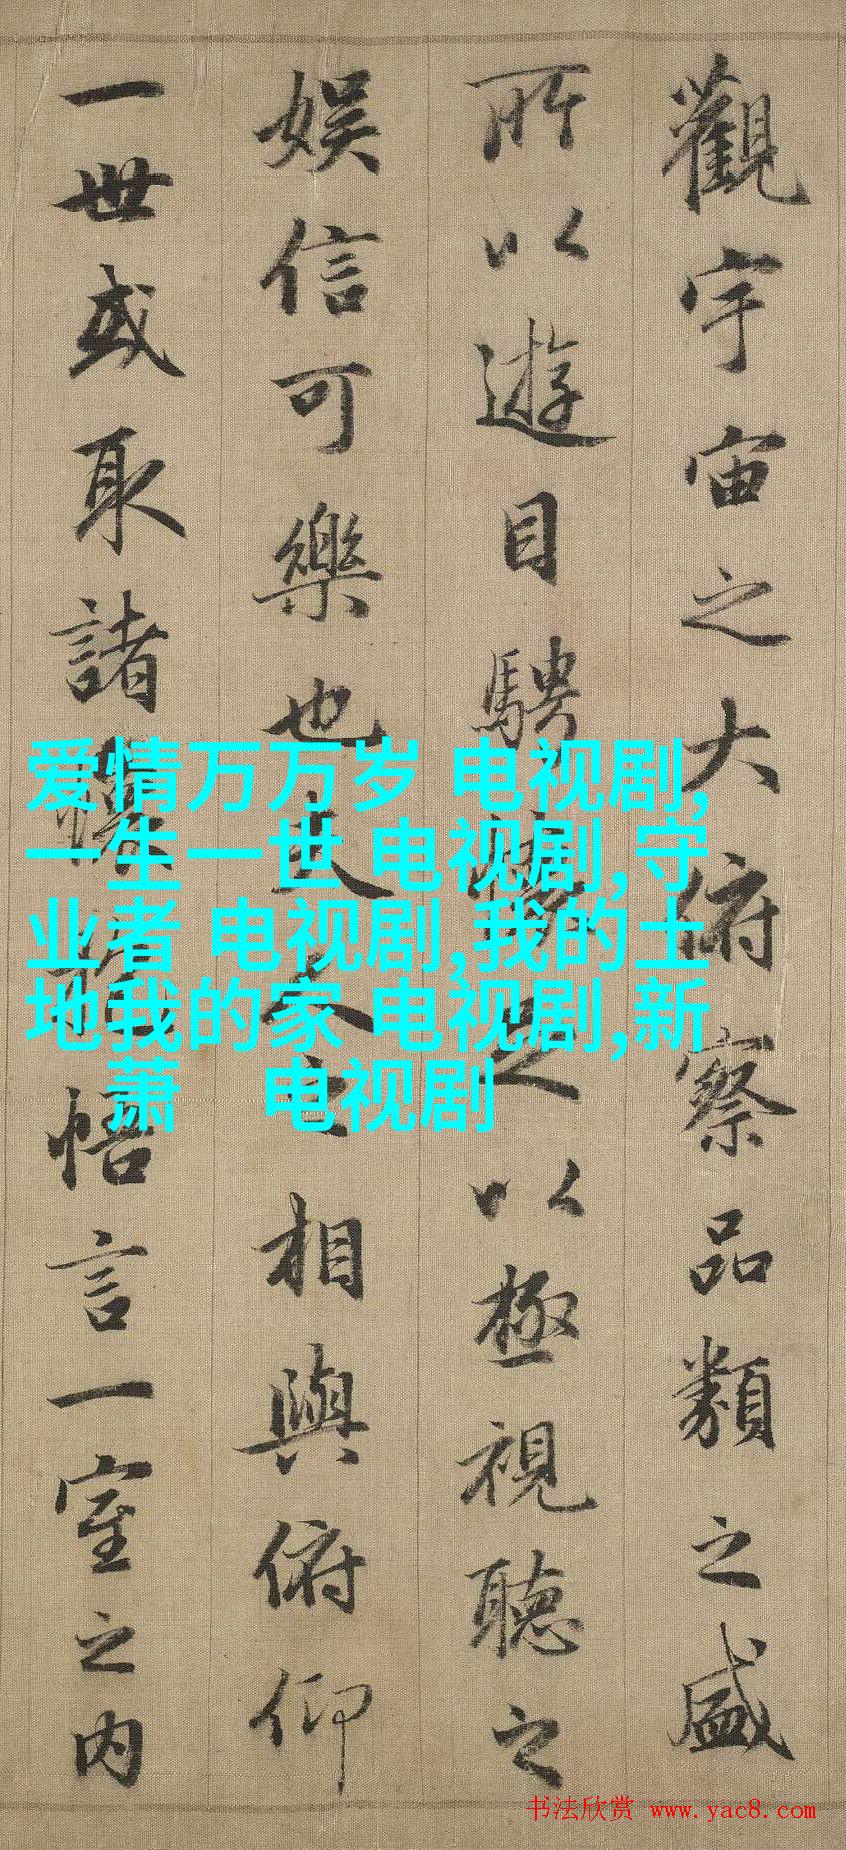 觀宇宙之大俯察品類之盛
所以遊目騁懷足以極視聽之
娛信可樂也夫人之相與俯仰
一世或取諸懷抱悟言一室之内
爱情万万岁 电视剧,
一生一世 电视剧,守
业者 电视剧,我的土
地我的家 电视剧,新
萧 电视剧
书法欣赏 www.yac8.com